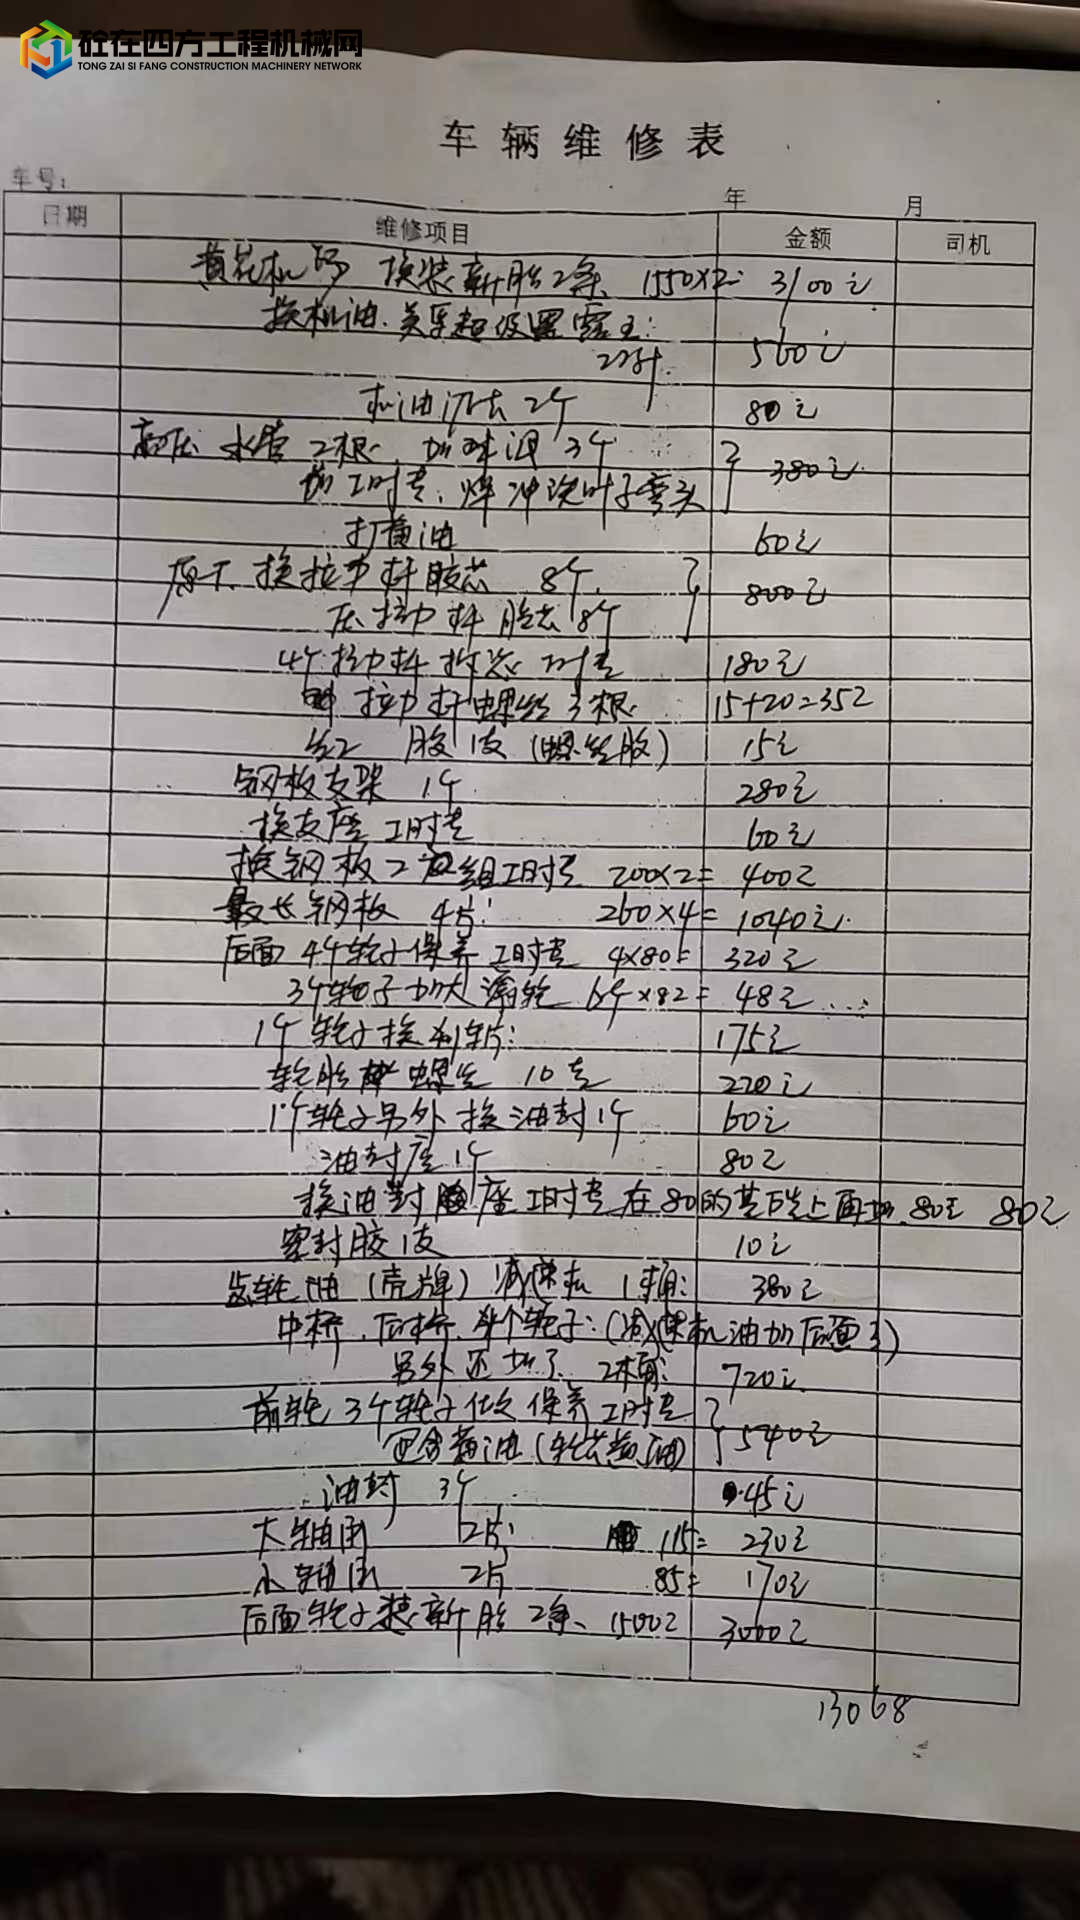 砼在四方工程机械网
TONG ZAI SI FANG CONSTRUCTION MACHINERY NETWORK
车辆维修表
车号: 年 月
日期 维修项目 金额 司机
换装新胎2条 1550×2= 3100元
换机油
560元
机油 2个 80元
水管2根 3个
加工时费 弯头 380元
打黄油 60元
换拉力杆胶芯 8个
拉力杆胶芯 8个 800元
4个拉力杆 工时费 180元
拉力杆螺丝3根 15+20=35元
胶1支(螺丝胶) 15元
钢板支架 1个 280元
换支座工时费 60元
换钢板2组工时费 200×2= 400元
最长钢板 4片: 260×4= 1040元
后面4个轮子保养工时费 4×80= 320元
3个轮子加大 6个×82= 48元
1个轮子换刹车片: 175元
轮胎螺丝 10支 220元
1个轮子另外换油封1个 60元
油封座1个 80元
换油封座工时费在80的基础上再加80元 80元
密封胶1支 10元
齿轮油(壳牌) 1桶: 380元
中桥、后桥、 轮子:( 机油加后面了)
另外还加了2桶: 720元
前轮3个轮子 保养工时费
包含黄油( 黄油) 540元
油封 3个 45元
大轴 2片: 115= 230元
小轴 2片 85= 170元
后面轮子装新胎2条、1500元 3000元
13068